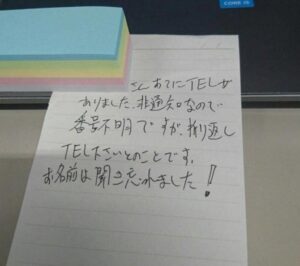 CORE i5
さん あてにTELが
ありました。非通知なので
番号不明ですが、折り返し
TEL下さいとのことです。
お名前は聞き忘れました!